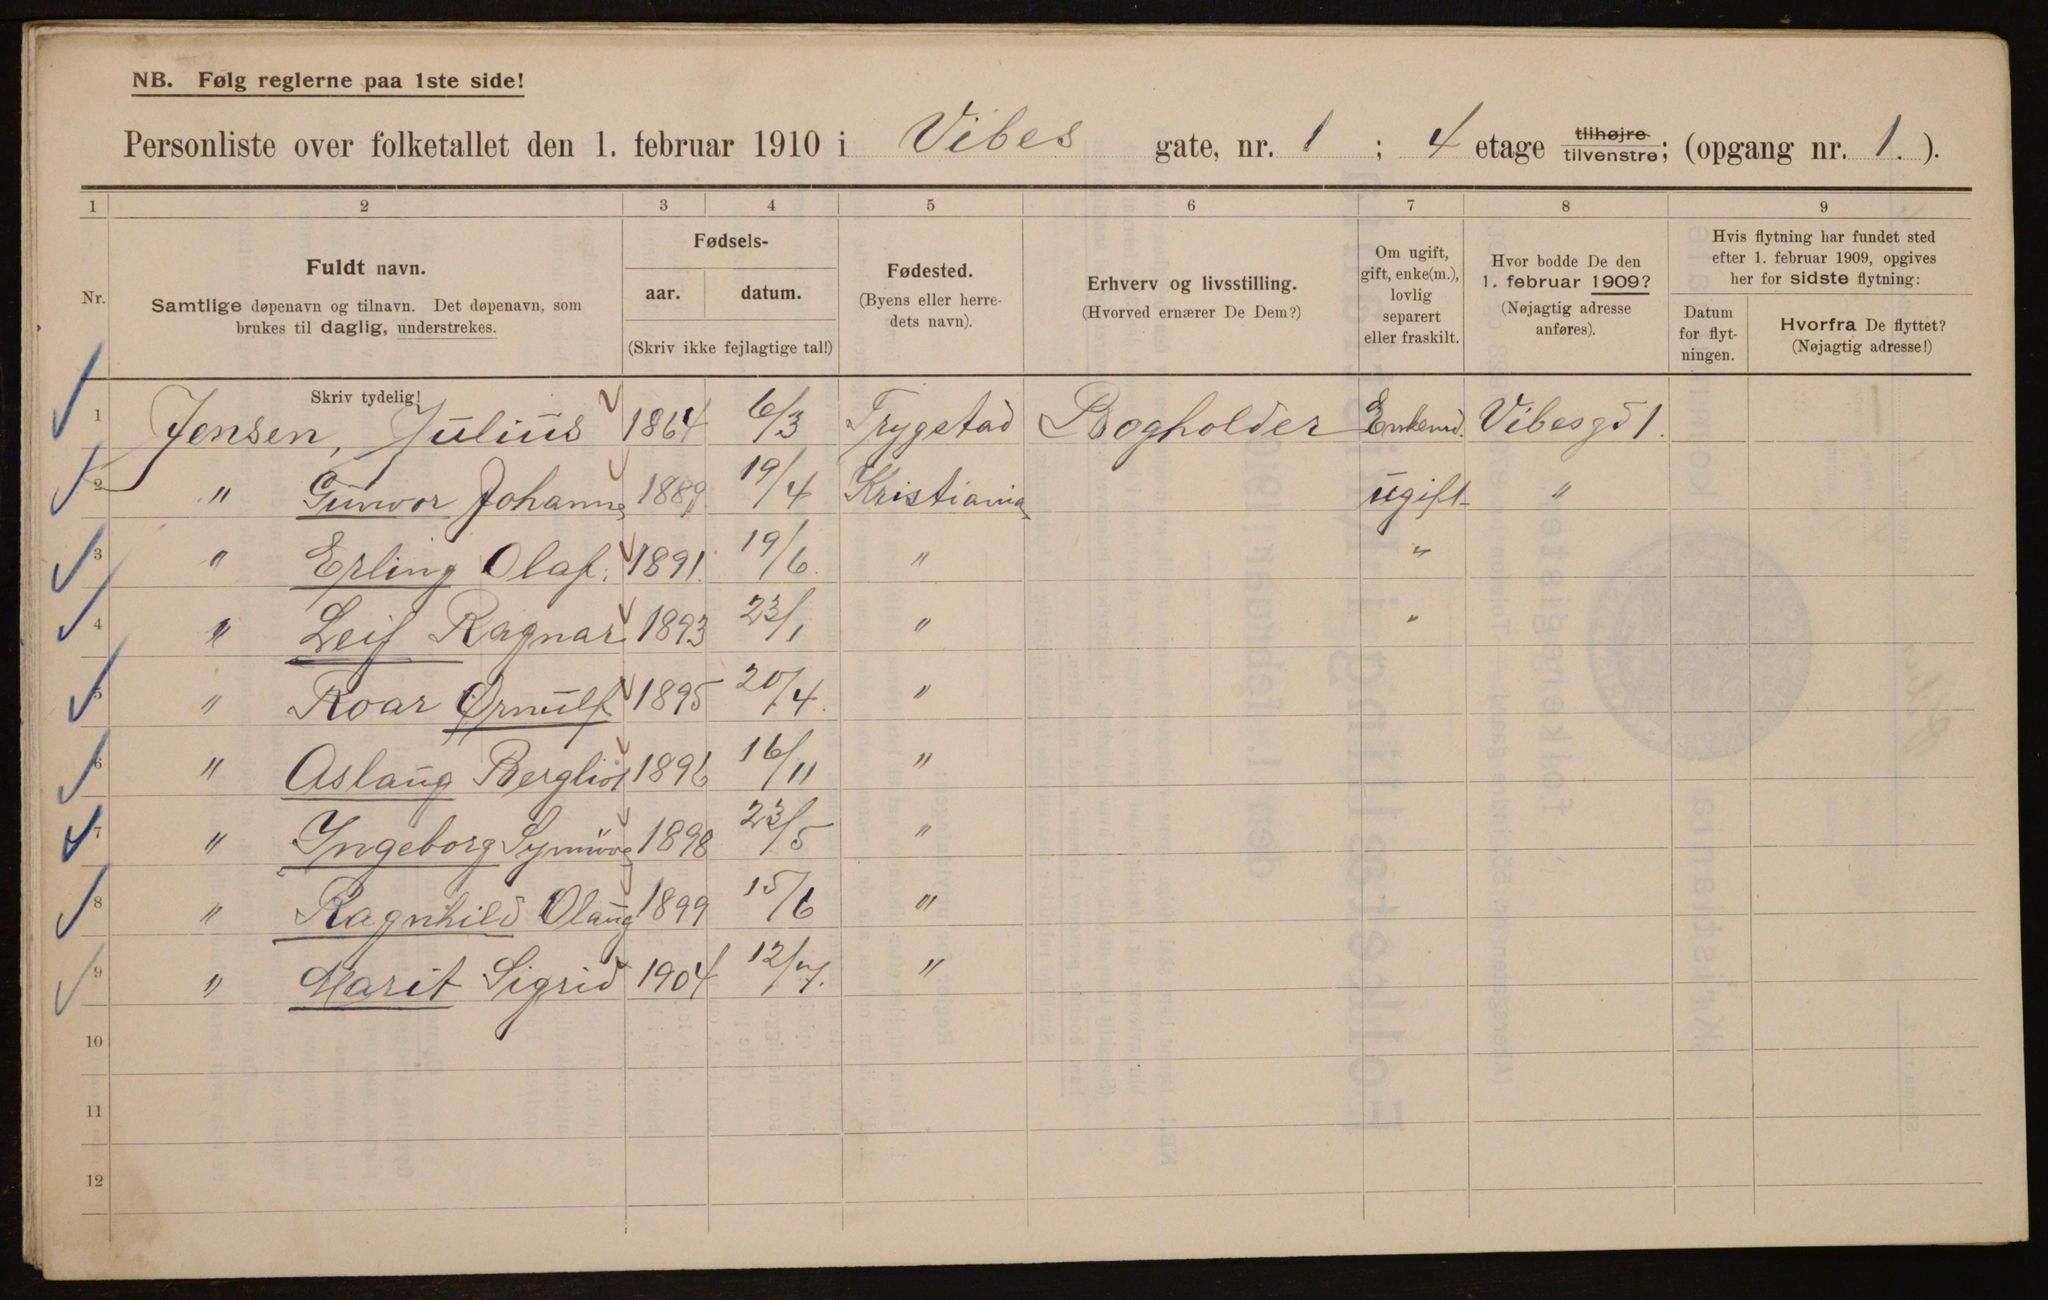 NB. Følg reglerne paa 1ste side!
Personliste over folketallet den 1. februar 1910 i Vibes gate, nr. 1; 4 etage tilhøjre/tilvenstre; (opgang nr. 1.).
1 2 3 4 5 6 7 8 9
Nr.
Fuldt navn.
Samtlige døpenavn og tilnavn. Det døpenavn, som
brukes til daglig, understrekes.
Fødsels-
aar. datum.
(Skriv ikke fejlagtige tal!)
Fødested.
(Byens eller herre-
dets navn).
Erhverv og livsstilling.
(Hvorved ernærer De Dem?)
Om ugift,
gift, enke(m.),
lovlig
separert
eller fraskilt.
Hvor bodde De den
1. februar 1909?
(Nøjagtig adresse
anføres).
Hvis flytning har fundet sted
efter 1. februar 1909, opgives
her for sidste flytning:
Datum
for flyt-
ningen.
Hvorfra De flyttet?
(Nøjagtig adresse!)
Skriv tydelig!
1 Jensen, Julius 1864 6/3 Trygstad Bogholder Enkemd. Vibesgd 1.
2 " Gunvor Johanne 1889. 19/4 Kristiania ugift "
3 " Erling Olaf. 1891. 19/6. " "
4 " Leif Ragnar 1893 23/1 " "
5 " Roar Ørnulf 1895 20/4. "
6 " Aslaug Bergliot 1896 16/11 "
7 " Ingeborg Synnøve 1898 23/5 "
8 " Ragnhild Olaug 1899 15/6 "
9 " Marit Sigrid 1904 12/7. "
10
11
12